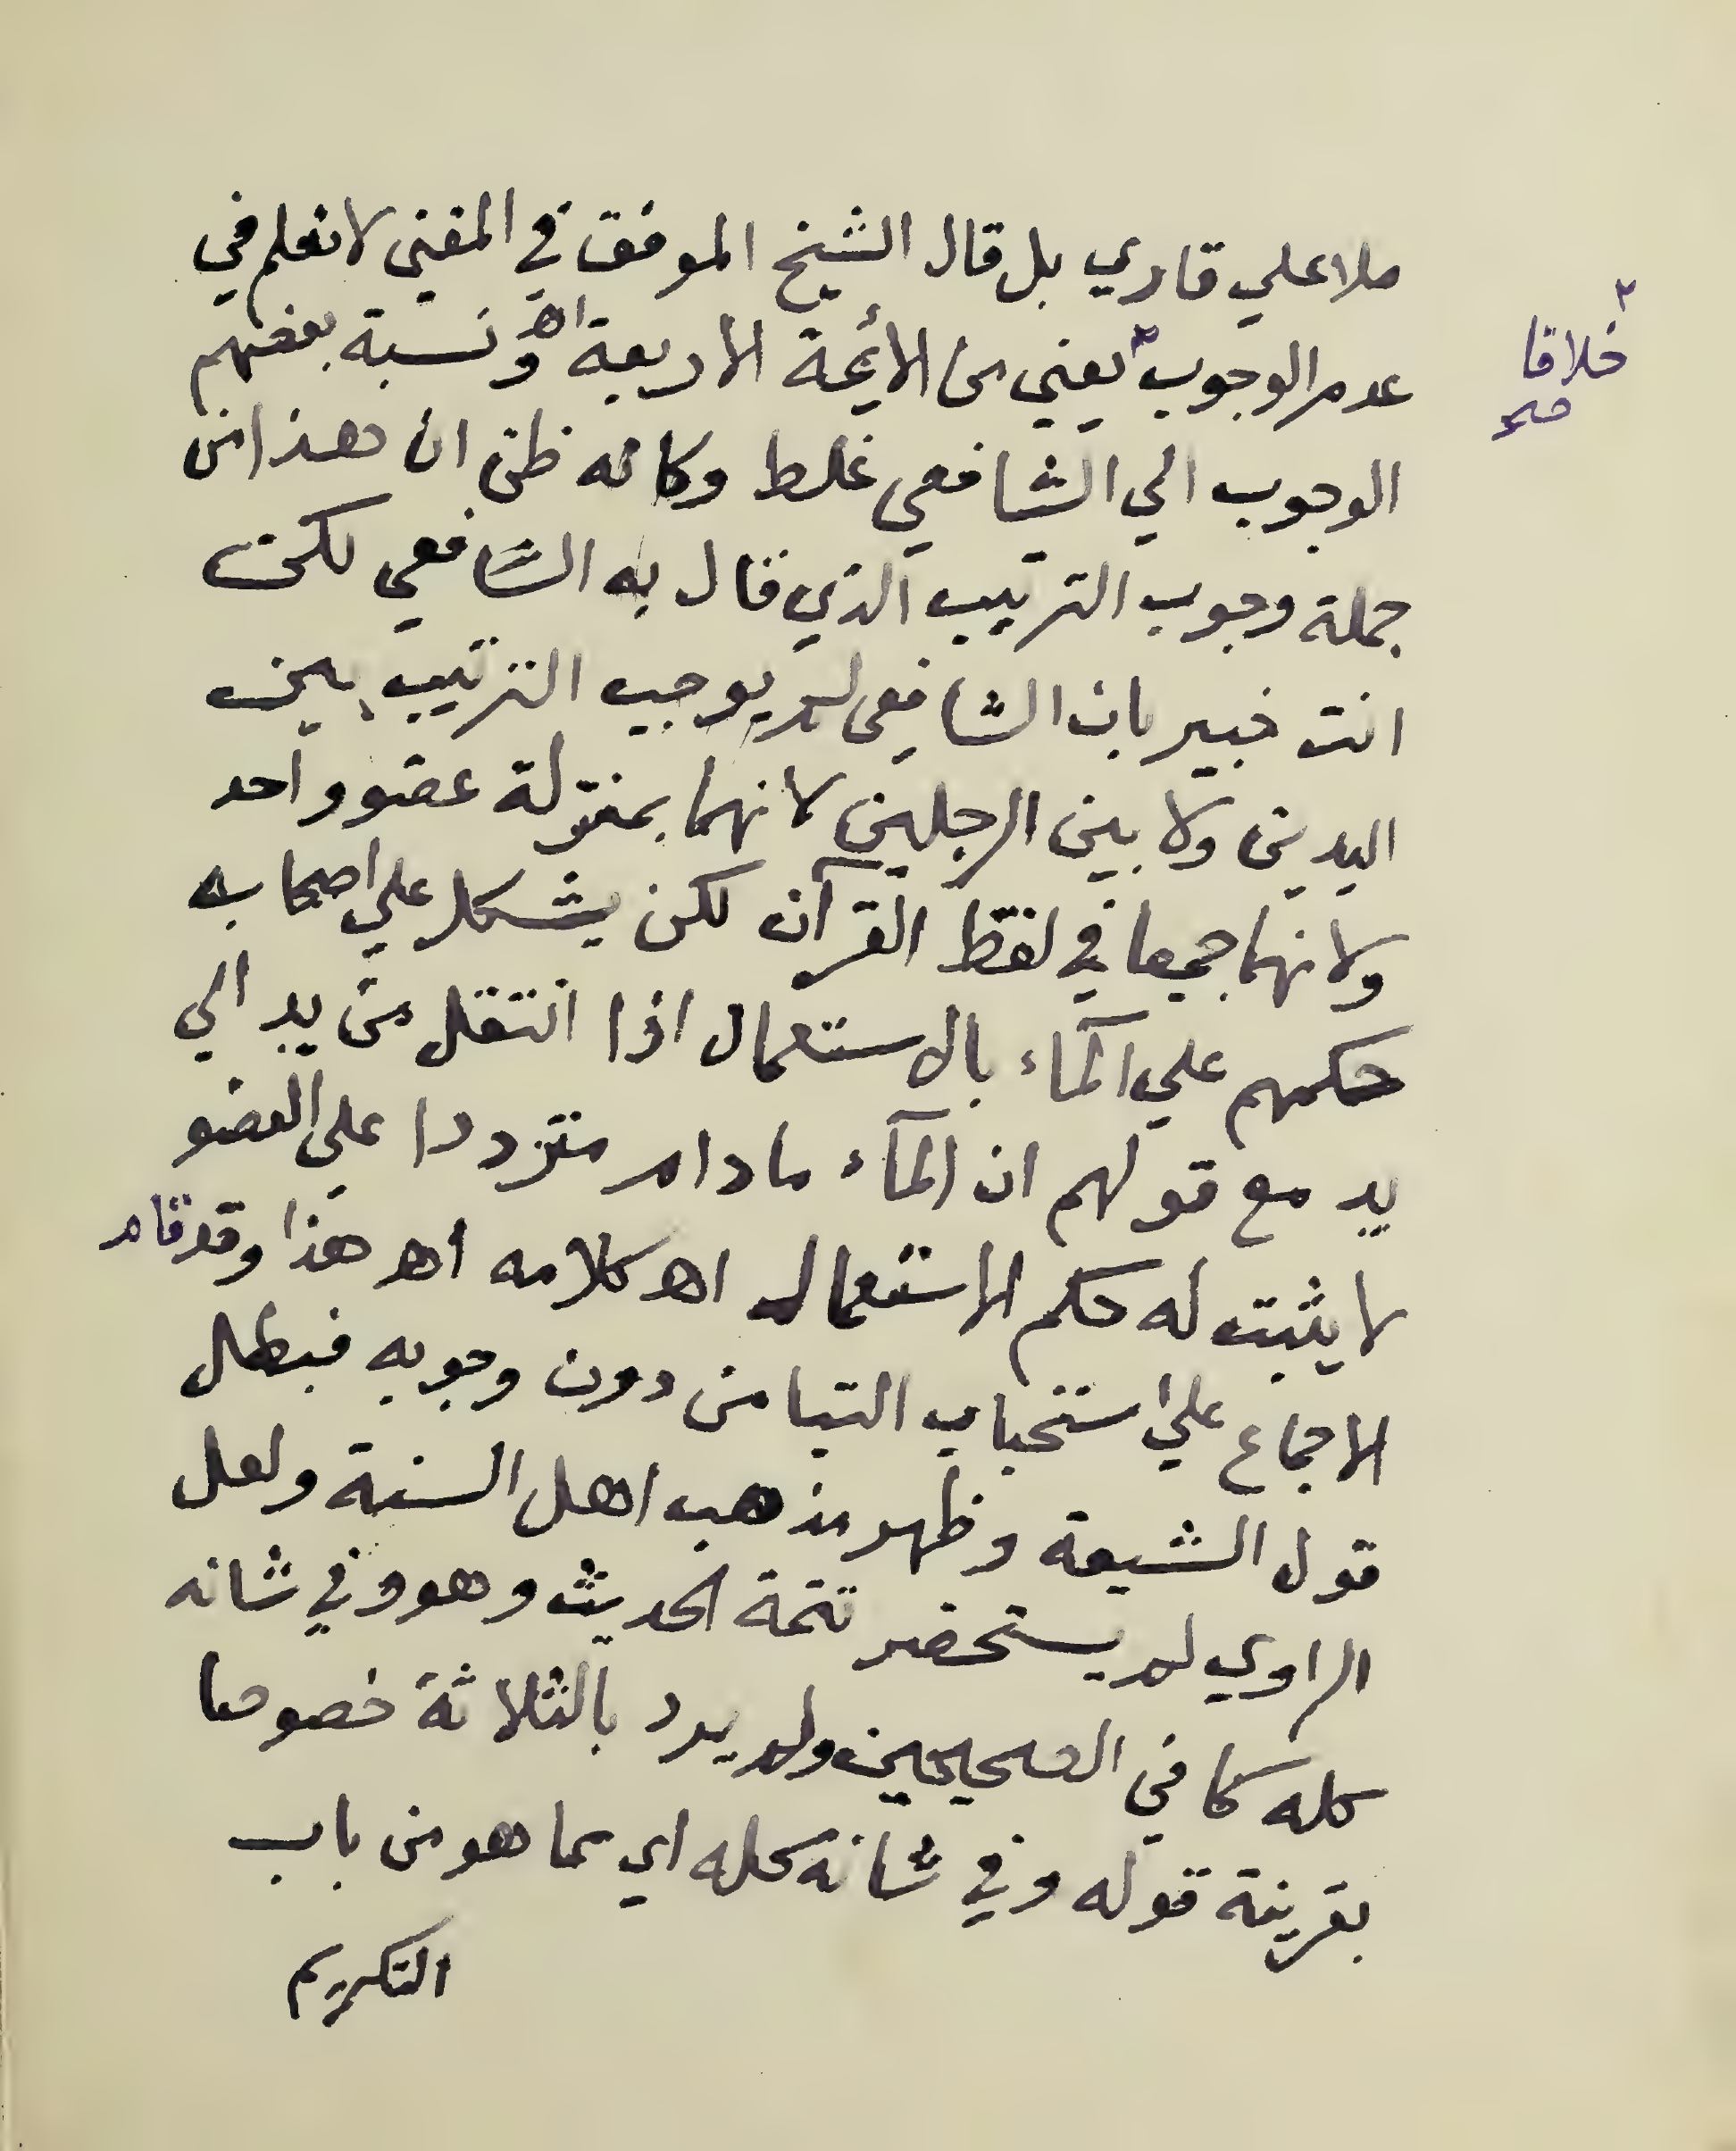 ملا علي قاري بل قال الشيخ الموفق في المغني لا نعلم في
عدم الوجوب ٢ يعني من الأئمة الاربعة اهـ ونسبة بعضهم
٢
خلافا
صح
الوجوب الي الشافعي غلط وكانه ظن ان هذا من
جملة وجوب الترتيب الذي قال به الشافعي لكن
انت خبير بان الشافعي لم يوجب الترتيب بين
اليدين ولا بين الرجلين لانهما بمنزلة عضو واحد
ولانهما جمعا في لفظ القرآن لكن يشكل علي اصحابه
حكمهم علي المآء بالاستعمال اذا انتقل من يد الي
يد مع قولهم ان المآء ما دام مترددا على العضو
لا يثبت له حكم الاستعمال اهـ كلامه اهـ هذا وقد قام
الاجماع علي استحباب التيامن دون وجوبه فبطل
قول الشيعة وظهر مذهب اهل السنة ولعل
الراوي لم يستحضر تتمة الحديث وهو وفي شانه
كله كما في الصحيحين ولم يرد بالثلاثة خصوصا
بقرينة قوله وفي شانه كله اي مما هو من باب
التكريم